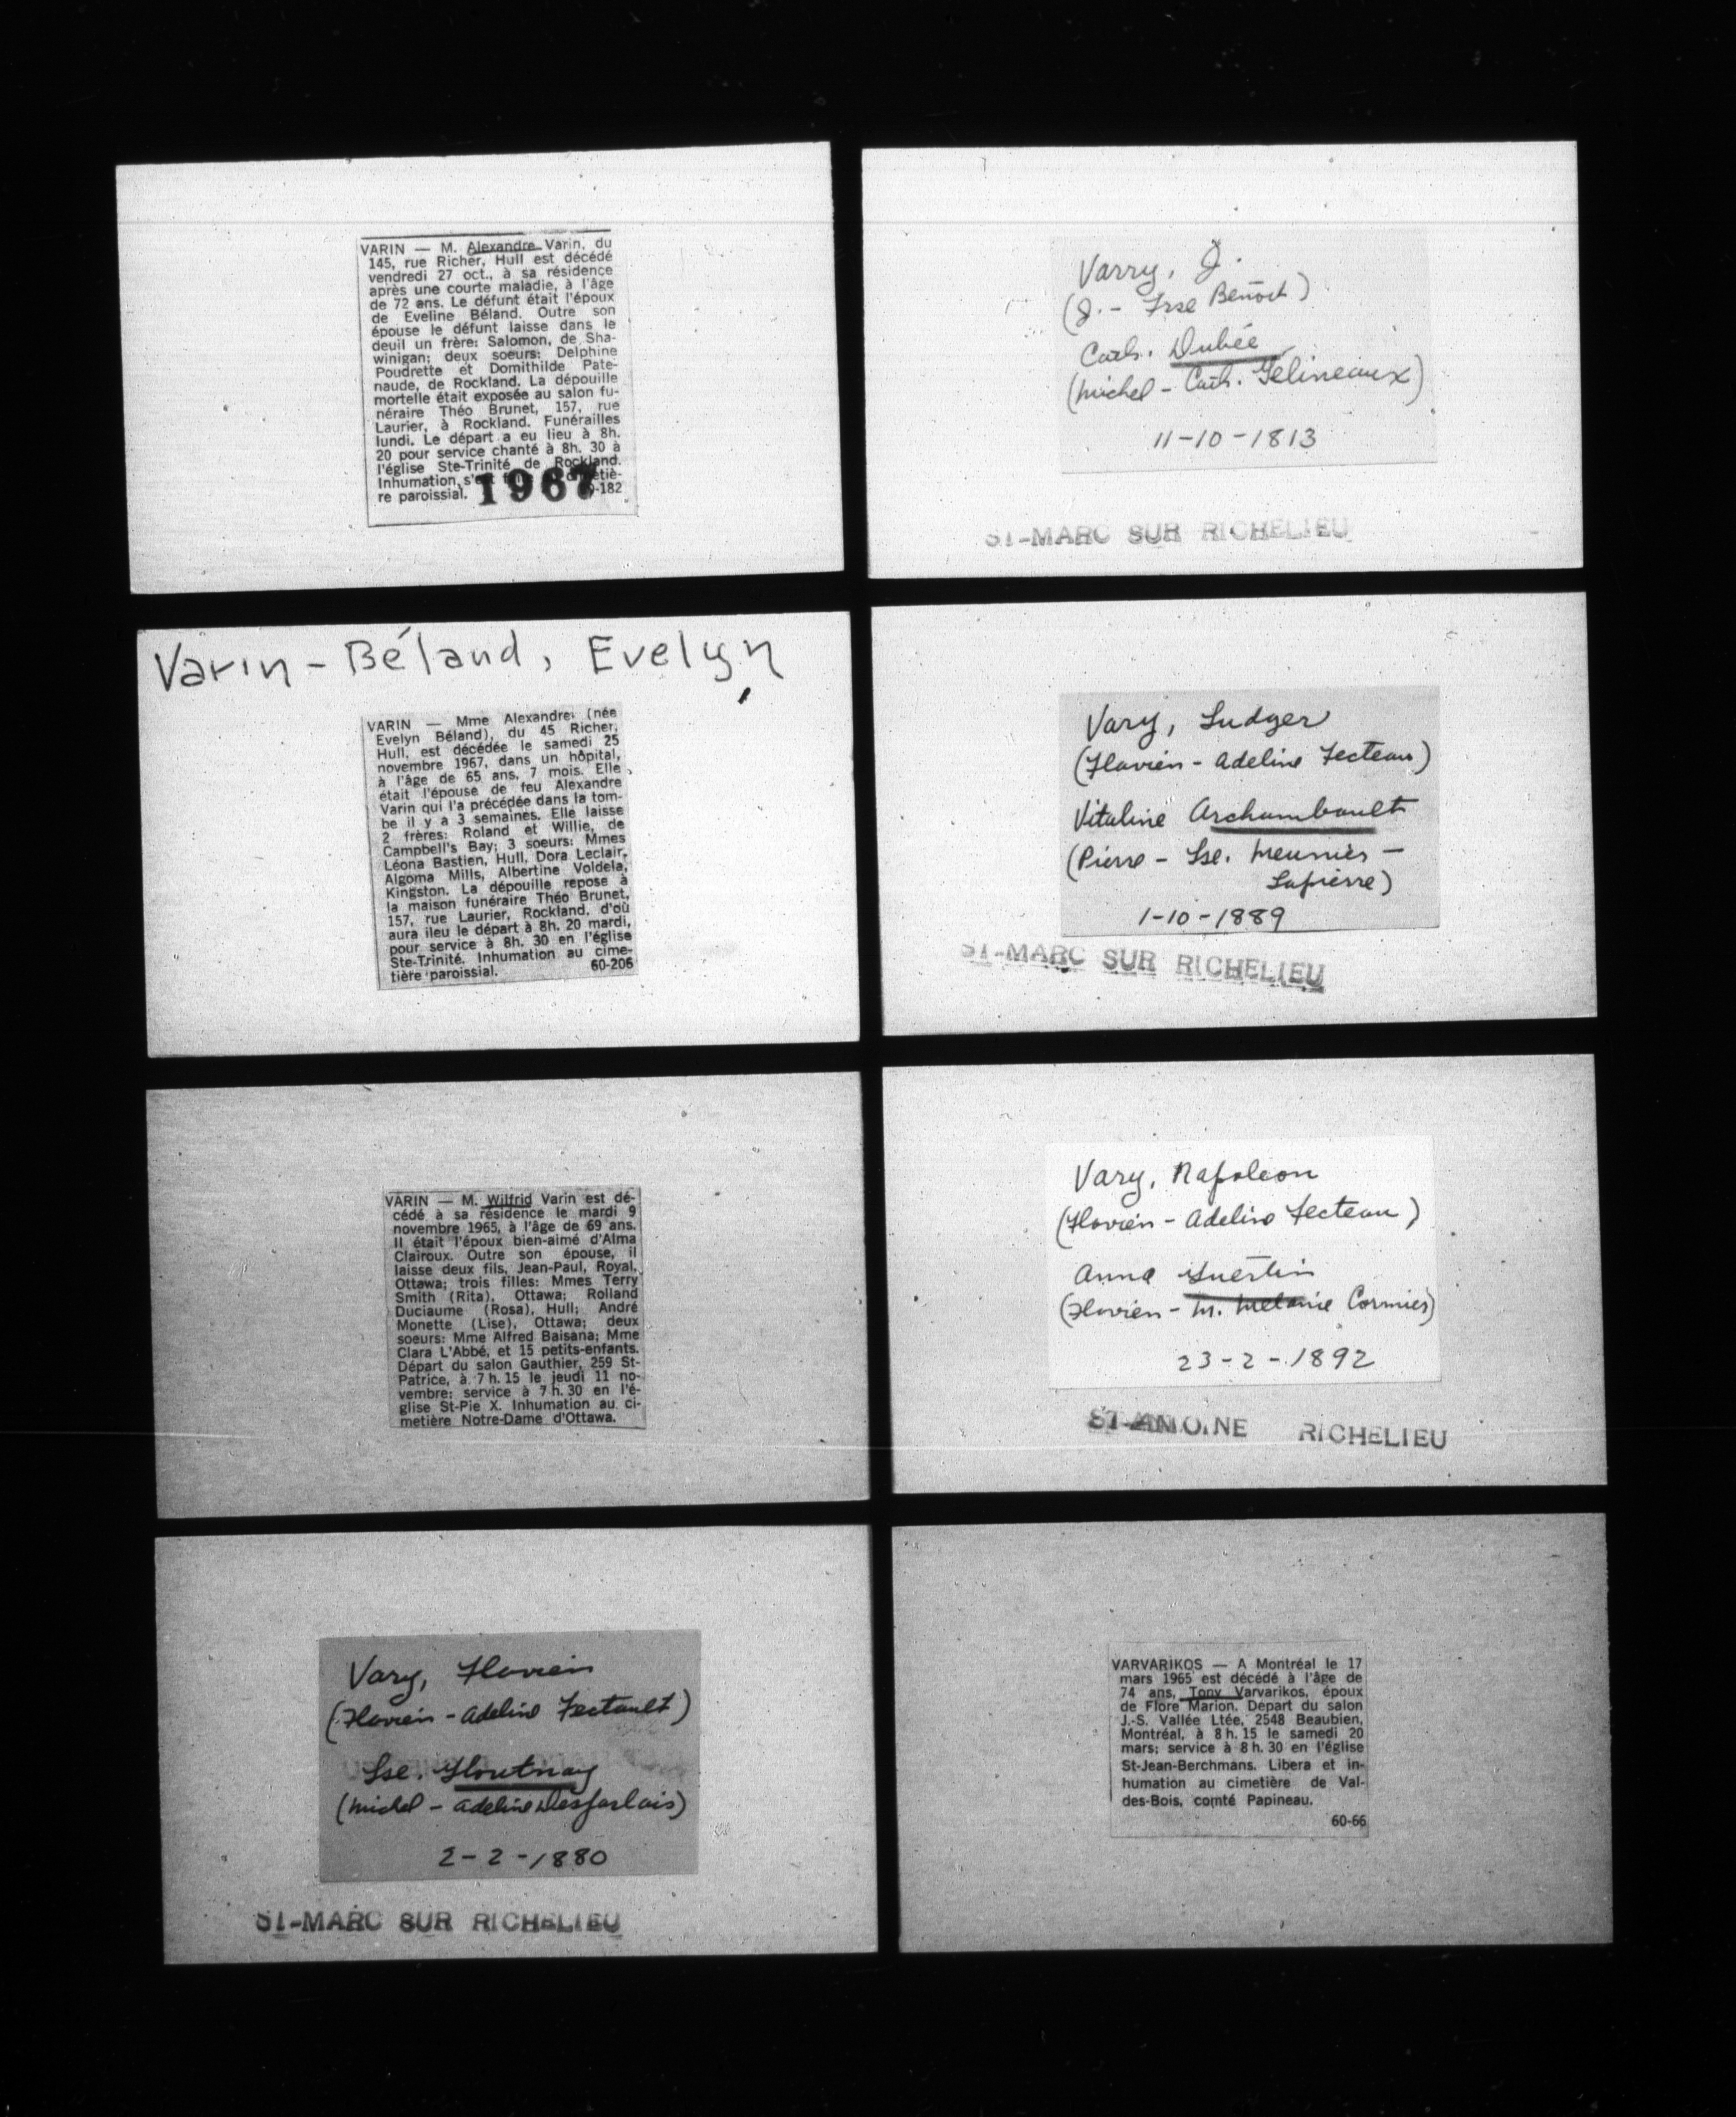 VARIN — M. Alexandre Varin, du
145, rue Richer, Hull est décédé
vendredi 27 oct., à sa résidence
après une courte maladie, à l'âge
de 72 ans. Le défunt était l'époux
de Eveline Béland. Outre son
épouse le défunt laisse dans le
deuil un frère: Salomon, de Sha-
winigan; deux soeurs: Delphine
Poudrette et Domithilde Pate-
naude, de Rockland. La dépouille
mortelle était exposée au salon fu-
néraire Théo Brunet, 157, rue
Laurier, à Rockland. Funérailles
lundi. Le départ a eu lieu à 8h.
20 pour service chanté à 8h. 30 à
l'église Ste-Trinité de Rockland.
Inhumation
re paroissial. 1967 -182
Varin-Béland, Evelyn
VARIN — Mme Alexandre: (née
Evelyn Béland), du 45 Richer,
Hull, est décédée le samedi 25
novembre 1967, dans un hôpital,
à l'âge de 65 ans, 7 mois. Elle
était l'épouse de feu Alexandre
Varin qui l'a précédée dans la tom-
be il y a 3 semaines. Elle laisse
2 frères: Roland et Willie, de
Campbell's Bay; 3 soeurs: Mmes
Léona Bastien, Hull, Dora Leclair,
Algoma Mills, Albertine Voldela,
Kingston. La dépouille repose à
la maison funéraire Théo Brunet,
157, rue Laurier, Rockland, d'où
aura ileu le départ à 8h. 20 mardi,
pour service à 8h. 30 en l'église
Ste-Trinité. Inhumation au cime-
tière paroissial. 60-206
VARIN — M. Wilfrid Varin est dé-
cédé à sa résidence le mardi 9
novembre 1965, à l'âge de 69 ans.
Il était l'époux bien-aimé d'Alma
Clairoux. Outre son épouse, il
laisse deux fils, Jean-Paul, Royal,
Ottawa; trois filles: Mmes Terry
Smith (Rita), Ottawa; Rolland
Duciaume (Rosa), Hull; André
Monette (Lise), Ottawa; deux
soeurs: Mme Alfred Baisana; Mme
Clara L'Abbé, et 15 petits-enfants.
Départ du salon Gauthier, 259 St-
Patrice, à 7 h. 15 le jeudi 11 no-
vembre; service à 7 h. 30 en l'é-
glise St-Pie X. Inhumation au ci-
metière Notre-Dame d'Ottawa.
Vary, Flavien
(Flavien - Adeline Fectault)
Lse. Floutnay
(Michel - Adeline Desjarlais)
2-2-1880
ST-MARC SUR RICHELIEU
Varry, J.
(J. - Frse Benoit)
Cath. Dubée
(Michel - Cath. Gelineaux)
11-10-1813
ST-MARC SUR RICHELIEU
Vary, Ludger
(Flavien - Adeline Fecteau)
Vitaline Archambault
(Pierre - Lse. Meunier -
Lapierre)
1-10-1889
ST-MARC SUR RICHELIEU
Vary, Napoleon
(Flavien - Adeline Fecteau)
Anna Guertin
(Flavien - M. Melanie Cormier)
23-2-1892
ST-ANTOINE RICHELIEU
VARVARIKOS — A Montréal le 17
mars 1965 est décédé à l'âge de
74 ans, Tony Varvarikos, époux
de Flore Marion. Départ du salon
J.-S. Vallée Ltée, 2548 Beaubien,
Montréal, à 8 h. 15 le samedi 20
mars; service à 8 h. 30 en l'église
St-Jean-Berchmans. Libera et in-
humation au cimetière de Val-
des-Bois, comté Papineau.
60-66